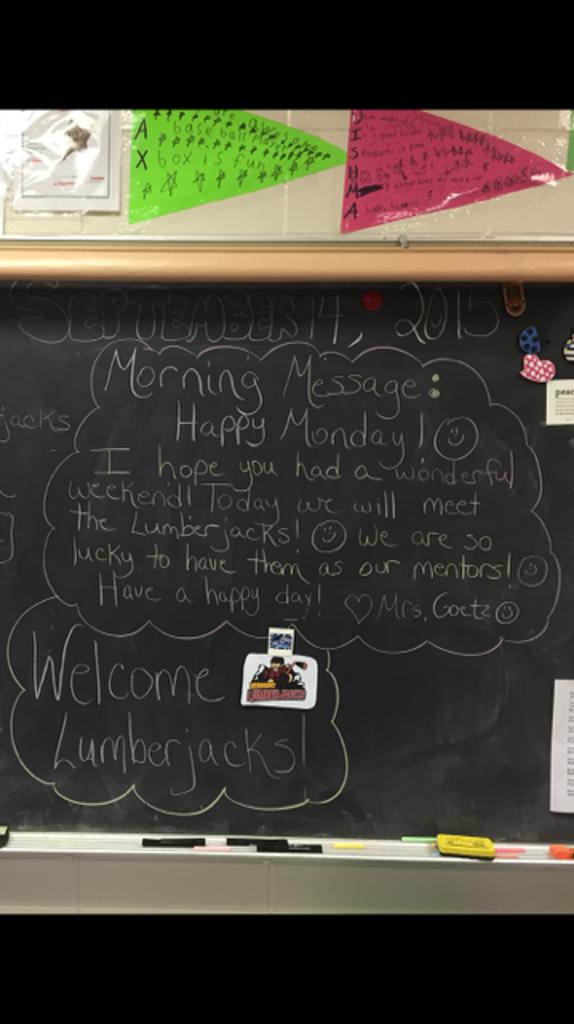 A base ball
X box is fun
D
I
S
H
M
A
SEPTEMBER 14, 2015
Morning Message:
Happy Monday!
jacks
I hope you had a wonderful
weekend! Today we will meet
the Lumberjacks! We are so
lucky to have them as our mentors!
Have a happy day! ♡ Mrs. Goetz
Welcome
Lumberjacks!
peac